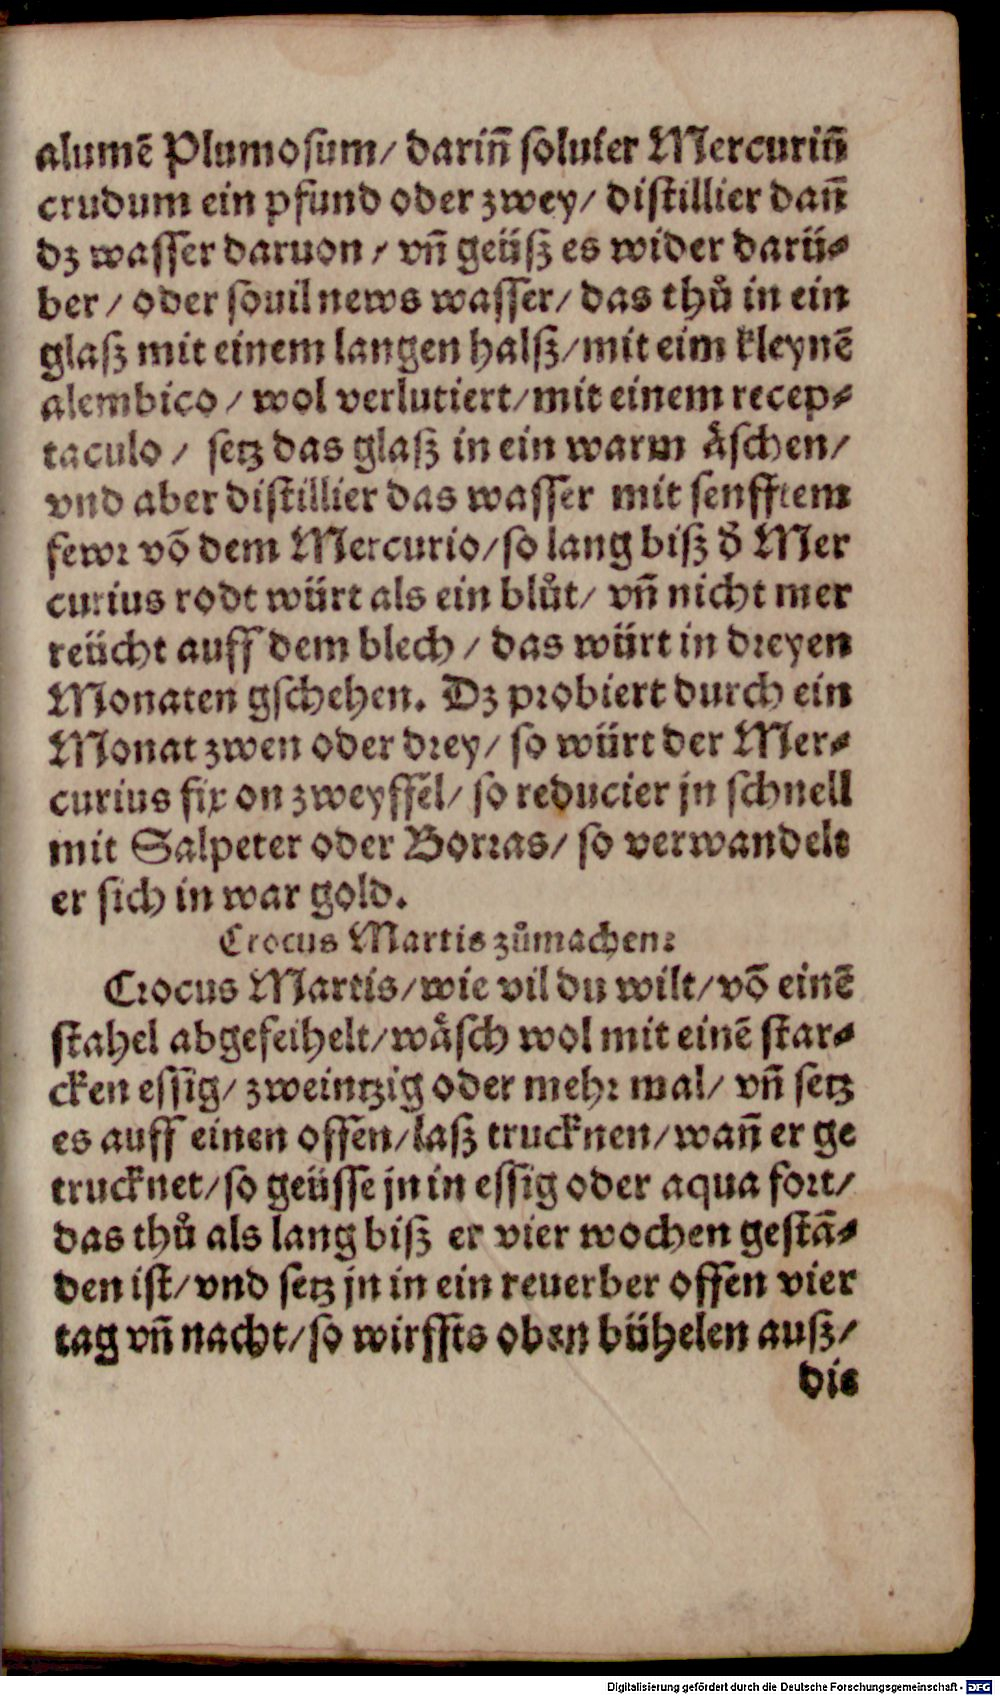 alumē Plumosum/ dariñ soluier Mercuriñ
crudum ein pfund oder zwey/ distillier dañ
dz wasser daruon/ vñ geüß es wider darü-
ber/ oder souil news wasser/ das thů in ein
glaß mit einem langen halß/mit eim kleynē
alembico/ wol verlutiert/mit einem recep-
taculo/ setz das glaß in ein warm äschen/
vnd aber distillier das wasser mit senfftem
fewr vō dem Mercurio/so lang biß ď Mer
curius rodt würt als ein blůt/ vñ nicht mer
reücht auff dem blech/ das würt in dreyen
Monaten gschehen. Dz probiert durch ein
Monat zwen oder drey/ so würt der Mer-
curius fix on zweyffel/ so reducier jn schnell
mit Salpeter oder Borras/ so verwandelt
er sich in war gold.
Crocus Martis zůmachen:
Crocus Martis/wie vil du wilt/vō einē
stahel abgefeihelt/wäsch wol mit einē star-
cken essig/ zweintzig oder mehr mal/ vñ setz
es auff einen offen/laß trucknen/wañ er ge
trucknet/so geüsse jn in essig oder aqua fort/
das thů als lang biß er vier wochen gestā-
den ist/vnd setz jn in ein reuerber offen vier
tag vñ nacht/so wirffts oben bühelen auß/
die
Digitalisierung gefördert durch die Deutsche Forschungsgemeinschaft - DFG